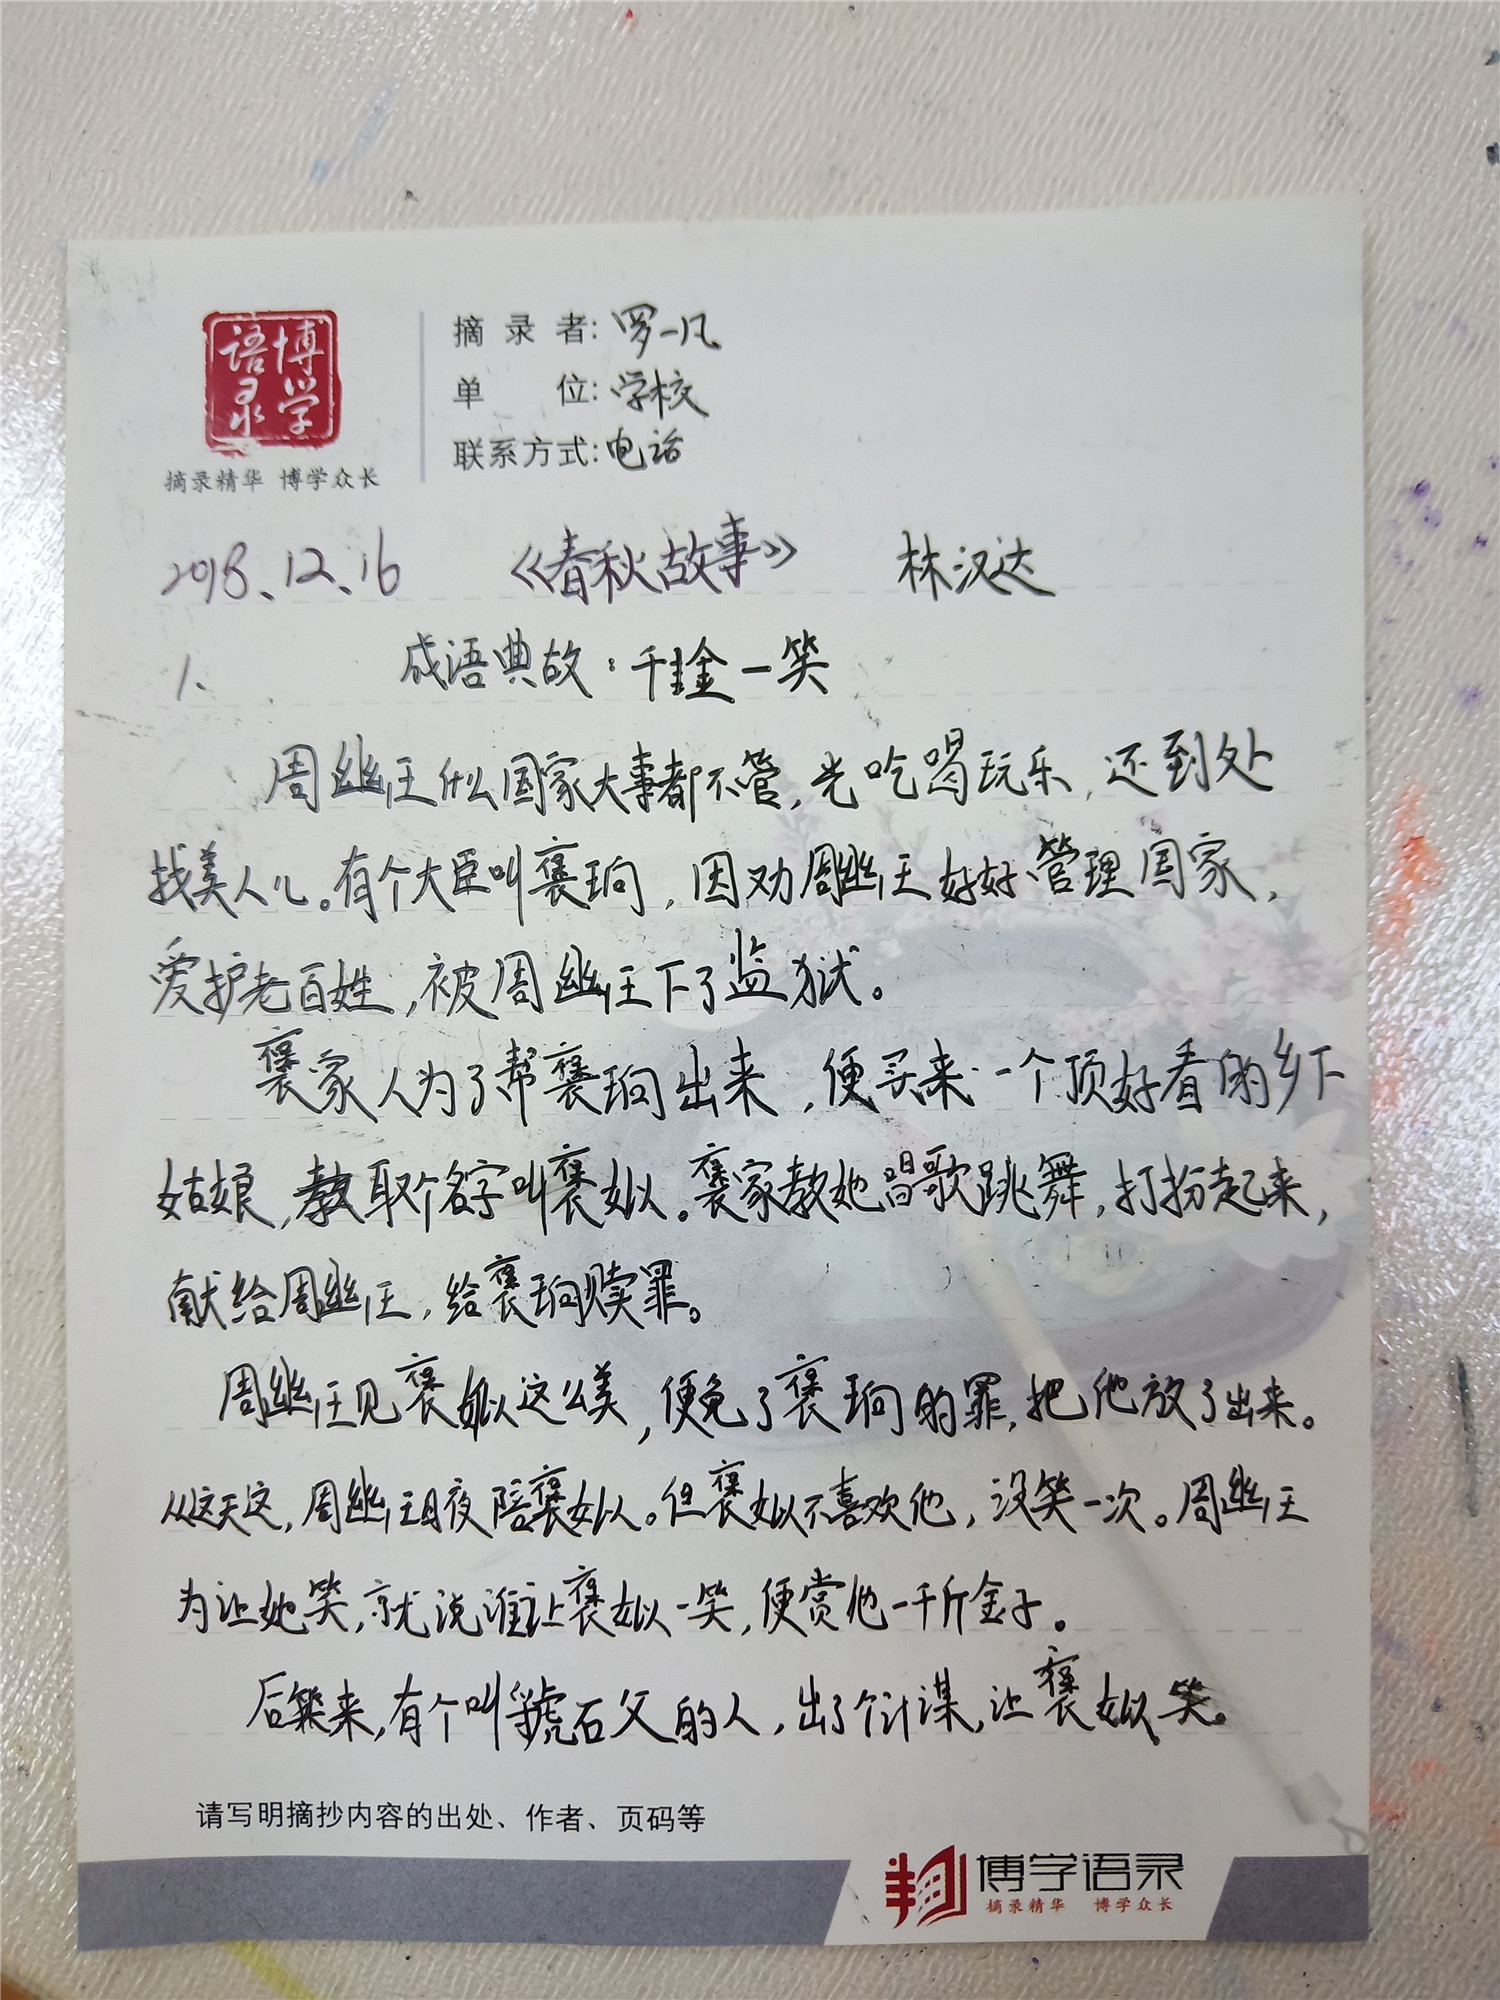 博学语录
摘录精华 博学众长
摘录者:罗一凡
单位:学校
联系方式:电话
2018、12、16 《春秋故事》 林汉达
1、 成语典故:千金一笑
周幽王什么国家大事都不管,光吃喝玩乐,还到处
找美人儿。有个大臣叫褒珦,因劝周幽王好好管理国家,
爱护老百姓,被周幽王下了监狱。
褒家人为了帮褒珦出来,便买来一个顶好看的乡下
姑娘,教取个名字叫褒姒。褒家教她唱歌跳舞,打扮起来,
献给周幽王,给褒珦赎罪。
周幽王见褒姒这么美,便免了褒珦的罪,把他放了出来。
从这天这,周幽王日夜陪褒姒。但褒姒不喜欢他,没笑一次。周幽王
为让她笑,就说谁让褒姒一笑,便赏他一千斤金子。
后来,有个叫虢石父的人,出了个计谋,让褒姒笑。
请写明摘抄内容的出处、作者、页码等
博字语录
摘录精华 博学众长